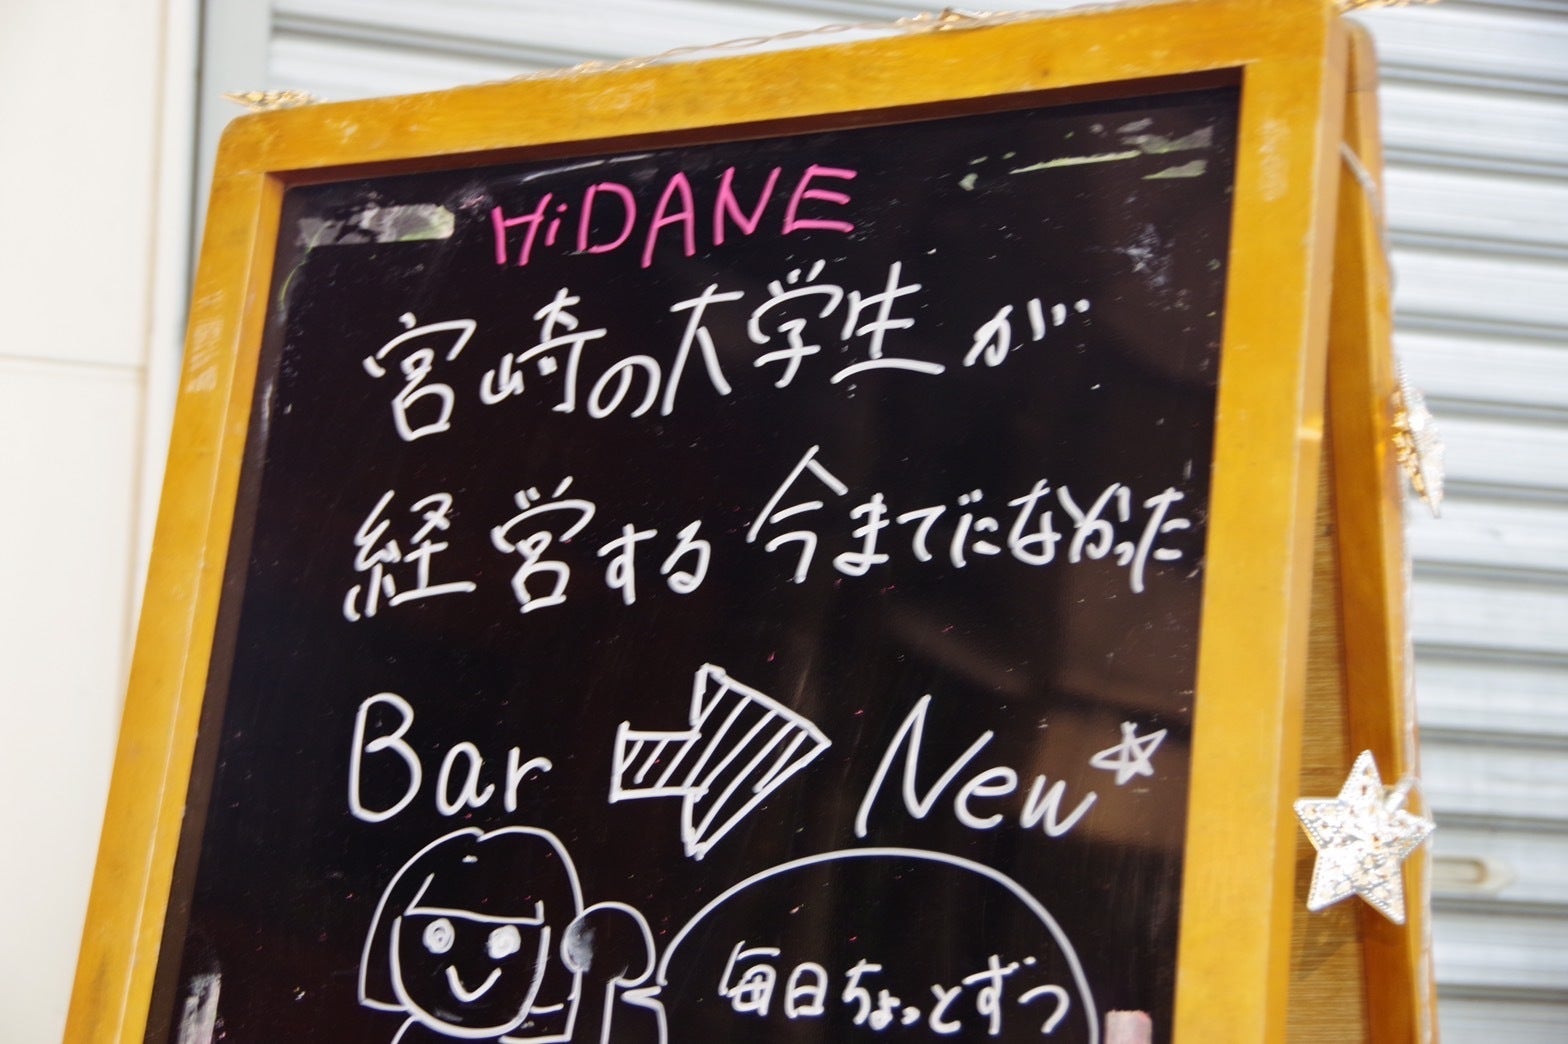 HiDANE
宮崎の大学生が
経営する今までになかった
Bar New
毎日ちょっとずつ